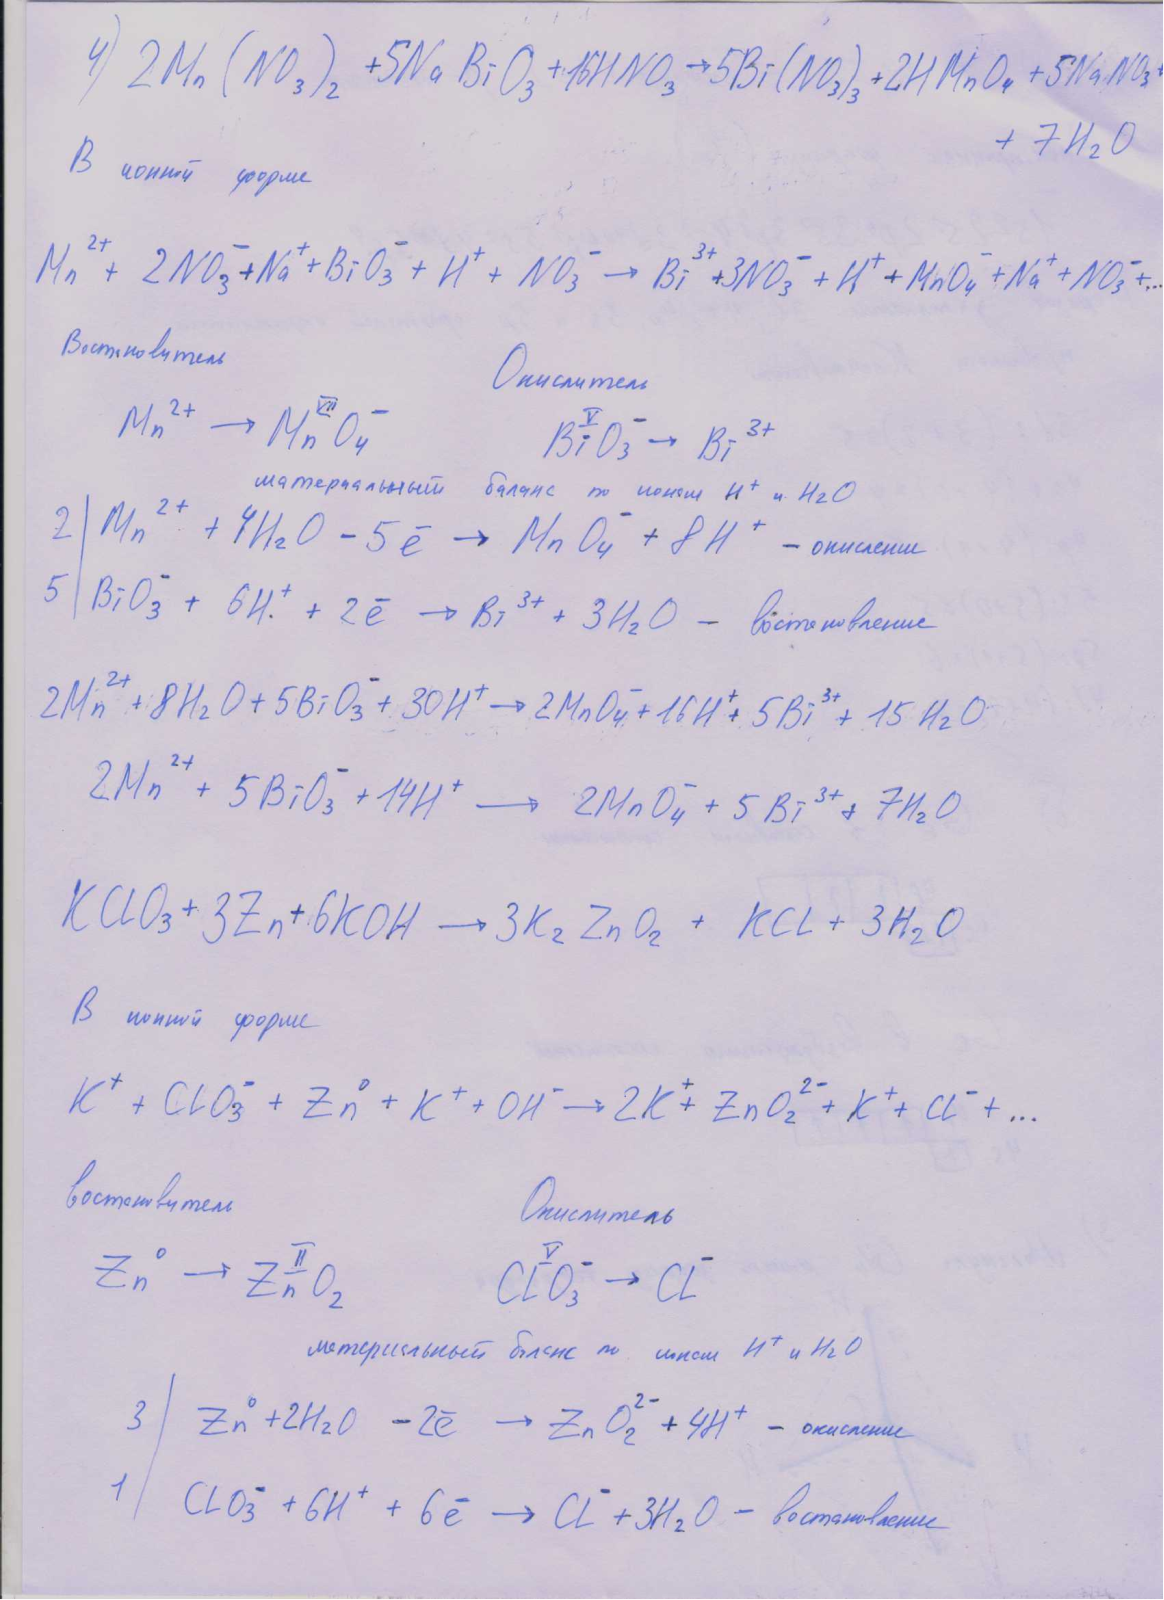 4) 2Mn(NO₃)₂ + 5NaBiO₃ + 16HNO₃ → 5Bi(NO₃)₃ + 2HMnO₄ + 5NaNO₃ +
+ 7H₂O
В ионной форме
Mn²⁺ + 2NO₃⁻ + Na⁺ + BiO₃⁻ + H⁺ + NO₃⁻ → Bi³⁺ + 3NO₃⁻ + H⁺ + MnO₄⁻ + Na⁺ + NO₃⁻ + ...
Востановитель Окислитель
Mn²⁺ → Mn^VII O₄⁻ Bi^V O₃⁻ → Bi³⁺
материальный баланс по ионам H⁺ и H₂O
2 | Mn²⁺ + 4H₂O - 5ē → MnO₄⁻ + 8H⁺ - окисление
5 | BiO₃⁻ + 6H⁺ + 2ē → Bi³⁺ + 3H₂O - востановление
2Mn²⁺ + 8H₂O + 5BiO₃⁻ + 30H⁺ → 2MnO₄⁻ + 16H⁺ + 5Bi³⁺ + 15H₂O
2Mn²⁺ + 5BiO₃⁻ + 14H⁺ → 2MnO₄⁻ + 5Bi³⁺ + 7H₂O
KClO₃ + 3Zn + 6KOH → 3K₂ZnO₂ + KCl + 3H₂O
В ионной форме
K⁺ + ClO₃⁻ + Zn⁰ + K⁺ + OH⁻ → 2K⁺ + ZnO₂²⁻ + K⁺ + Cl⁻ + ...
востановитель Окислитель
Zn⁰ → Zn^II O₂ Cl^V O₃⁻ → Cl⁻
материальный баланс по ионам H⁺ и H₂O
3 | Zn⁰ + 2H₂O - 2ē → ZnO₂²⁻ + 4H⁺ - окисление
1 | ClO₃⁻ + 6H⁺ + 6ē → Cl⁻ + 3H₂O - востановление